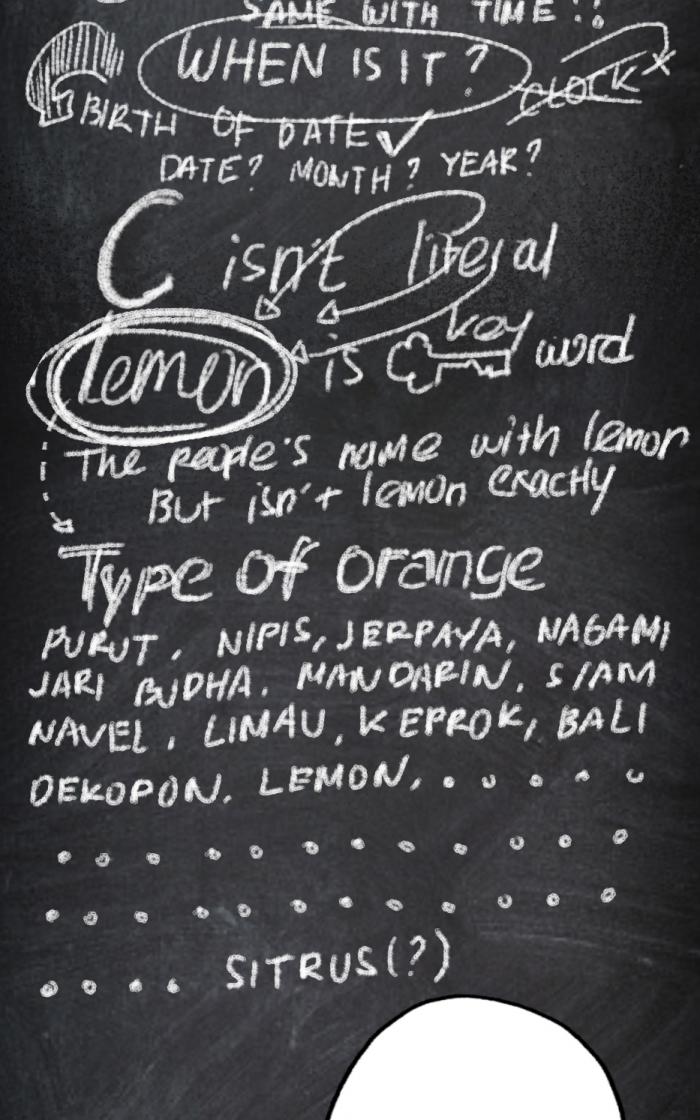 SAME WITH TIME!!
WHEN IS IT?
CLOCK X
BIRTH OF DATE ✓
DATE? MONTH? YEAR?
C isn't literal
lemon is key word
The people's name with lemon
But isn't lemon exactly
Type of orange
PURUT, NIPIS, JERPAYA, NAGAMI
JARI BUDHA, MANDARIN, SIAM
NAVEL, LIMAU, KEPROK, BALI
DEKOPON, LEMON, . . . . .
. . . . . . . . . . . .
. . . . . . . . . . . .
. . . . SITRUS(?)